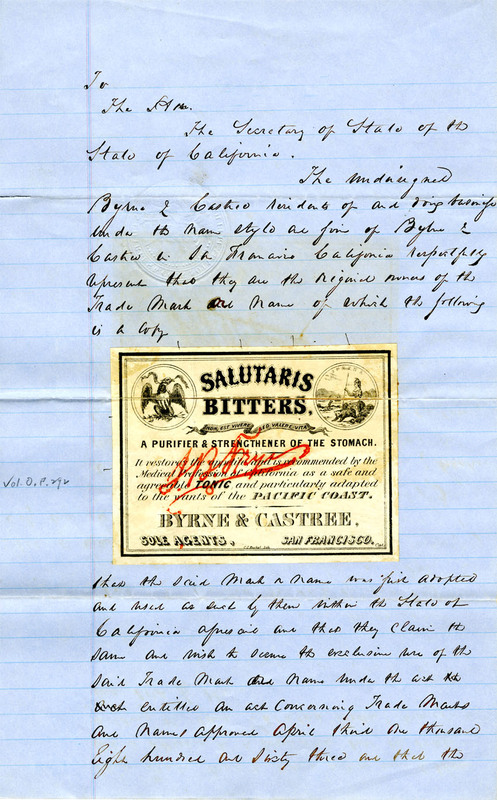 To
The Hon.
The Secretary of State of the
State of California.
The undersigned
Byrne & Castree residents of and doing business
under the name style and firm of Byrne &
Castree in San Francisco California respectfully
represent that they are the original owners of the
Trade Mark and Name of which the following
is a copy
SALUTARIS
BITTERS,
NON EST VIVERE SED VALERE VITA
A PURIFIER & STRENGTHENER OF THE STOMACH.
It restores the appetite and is recommended by the
Medical Profession of California as a safe and
agreeable TONIC and particularly adapted
to the wants of the PACIFIC COAST.
BYRNE & CASTREE,
SOLE AGENTS, SAN FRANCISCO.
Vol. D. P. 292
that the said Mark & Name was first adopted
and used as such by them within the State of
California aforesaid and that they claim the
same and wish to secure the exclusive use of the
said Trade Mark and Name under the act
entitled An act Concerning Trade Marks
and Names approved April third one thousand
Eight hundred and Sixty three and that the